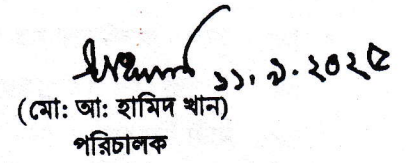 ১১.৯.২০২৫
(মো: আ: হামিদ খান)
পরিচালক